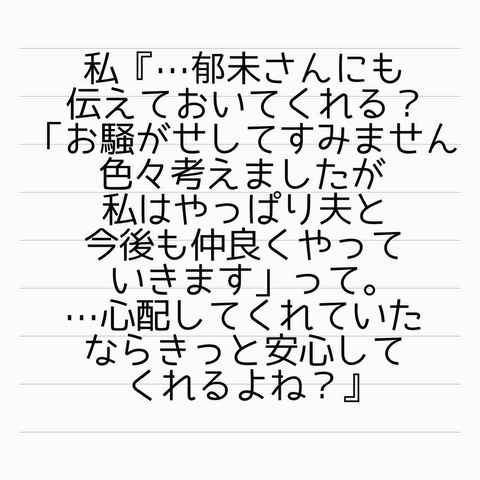 私『…郁未さんにも
伝えておいてくれる？
「お騒がせしてすみません
色々考えましたが
私はやっぱり夫と
今後も仲良くやって
いきます」って。
…心配してくれていた
ならきっと安心して
くれるよね？』